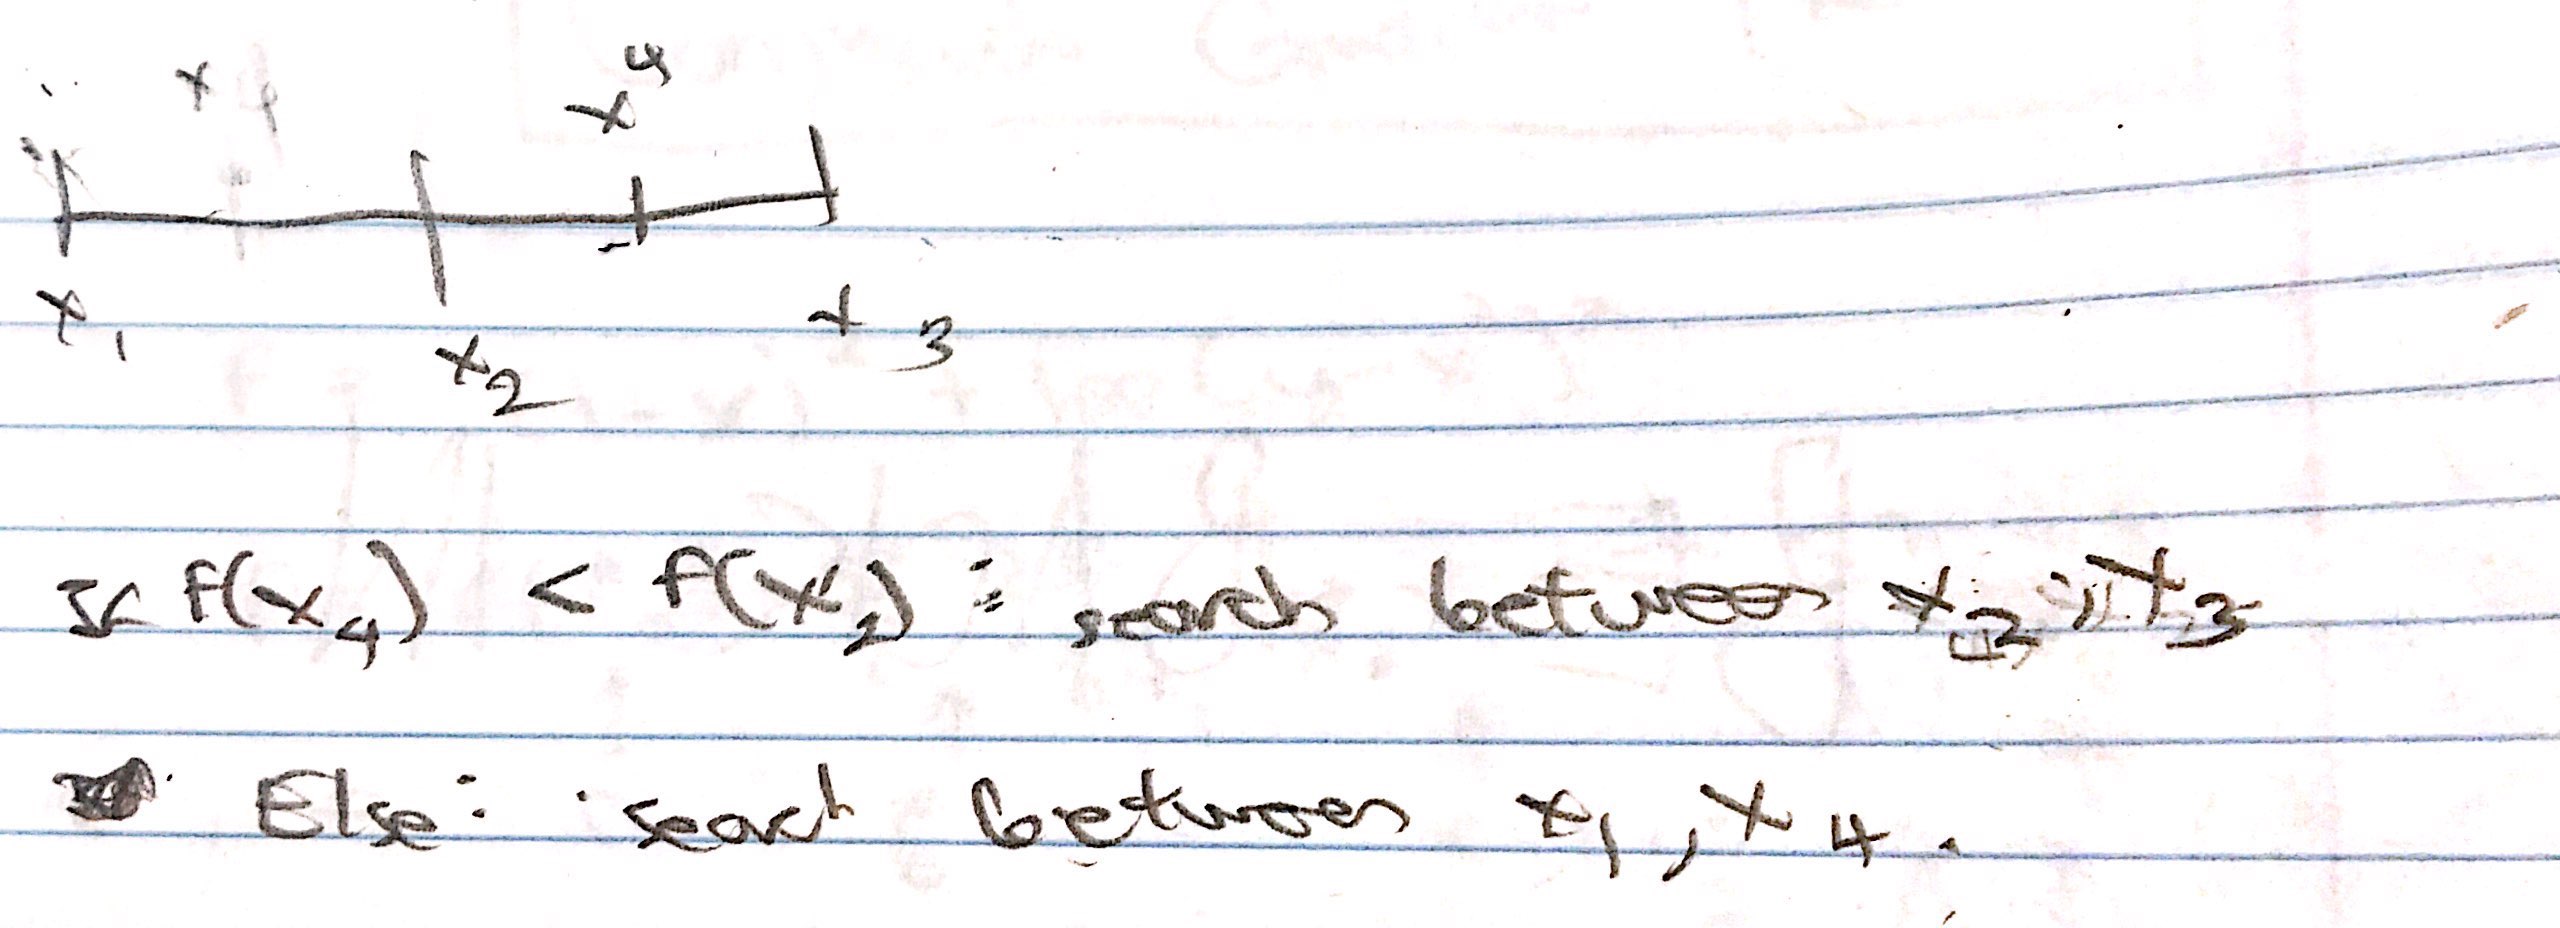 x₄ x⁴
x₁ x₂ x₃
If f(x₄) < f(x₂) : search between x₂, x₃
Else: search between x₁, x₄.